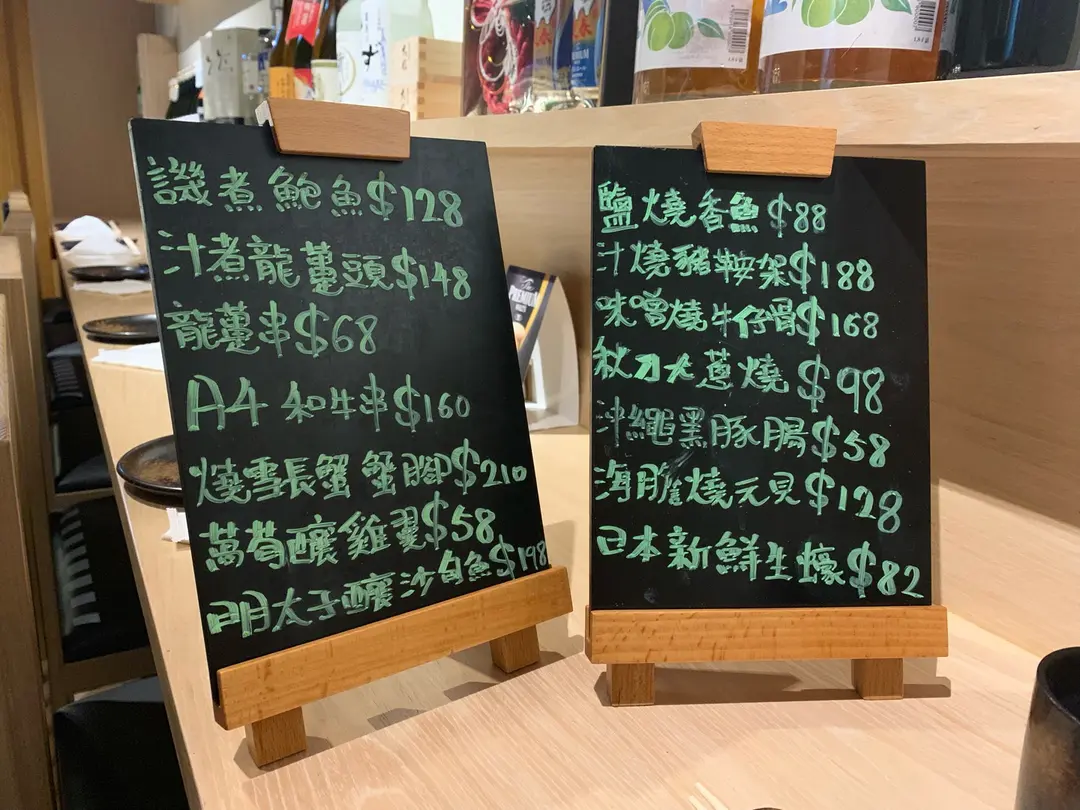 譏煮鮑魚$128
汁煮龍躉頭$148
龍躉串$68
A4 和牛串$160
燒雪長蟹蟹腳$210
萬荀釀雞翼$58
明太子釀沙白魚$198
鹽燒香魚$88
汁燒豬鞍架$188
味噌燒牛仔骨$168
秋刀大蔥燒$98
沖繩黑豚腸$58
海膽燒元貝$128
日本新鮮生蠔$82
PREMIUM